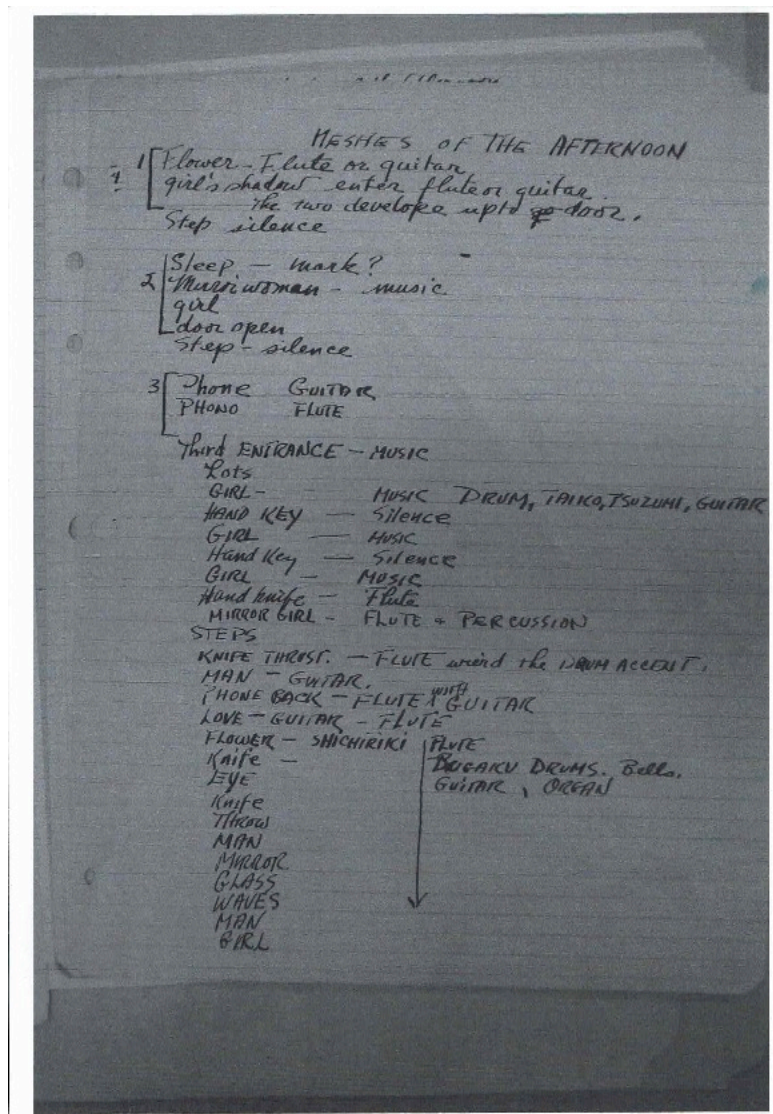 MESHES OF THE AFTERNOON
1 Flower - Flute or guitar
girl's shadow enter flute or guitar.
the two develope upto door.
Step silence
2 Sleep - mark?
Mirror woman - music
girl
door open
Step - silence
3 Phone GUITAR
PHONO FLUTE
Third ENTRANCE - MUSIC
Lots
GIRL - MUSIC DRUM, TAIKO, TSUZUMI, GUITAR
HAND KEY - Silence
GIRL - MUSIC
Hand Key - Silence
GIRL - MUSIC
Hand knife - Flute
MIRROR GIRL - FLUTE + PERCUSSION
STEPS
KNIFE THRUST. - FLUTE wierd the DRUM ACCENT.
MAN - GUITAR.
PHONE BACK - FLUTE with GUITAR
LOVE - GUITAR - FLUTE
FLOWER - SHICHIRIKI FLUTE
Knife - BUGAKU DRUMS. Bells.
EYE GUITAR, ORGAN
Knife
THROW
MAN
MIRROR
GLASS
WAVES
MAN
GIRL